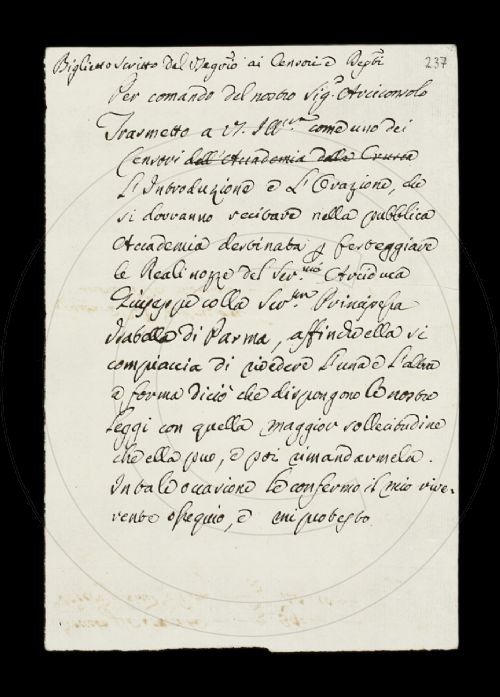 Biglietto scritto del Segrio ai Censori e Depti
237
Per comando del nostro Sig.e Arciconsolo
Trasmetto a V. Ill.ma come uno dei
Censori dell'Accademia della Crusca
L'Introduzione e L'Orazione, che
si dovranno recitare nella pubblica
Accademia destinata p festeggiare
le Reali nozze del Ser.mo Arciduca
Giuseppe colla Ser.ma Principessa
Isabella di Parma, affinche ella si
compiaccia di rivedere L'una e L'altra
a forma di ciò che dispongono le nostre
Leggi con quella maggior sollecitudine
che ella puo, e poi rimandarmela.
In tale occasione le confermo il mio rive-
rente ossequio, e mi protesto.